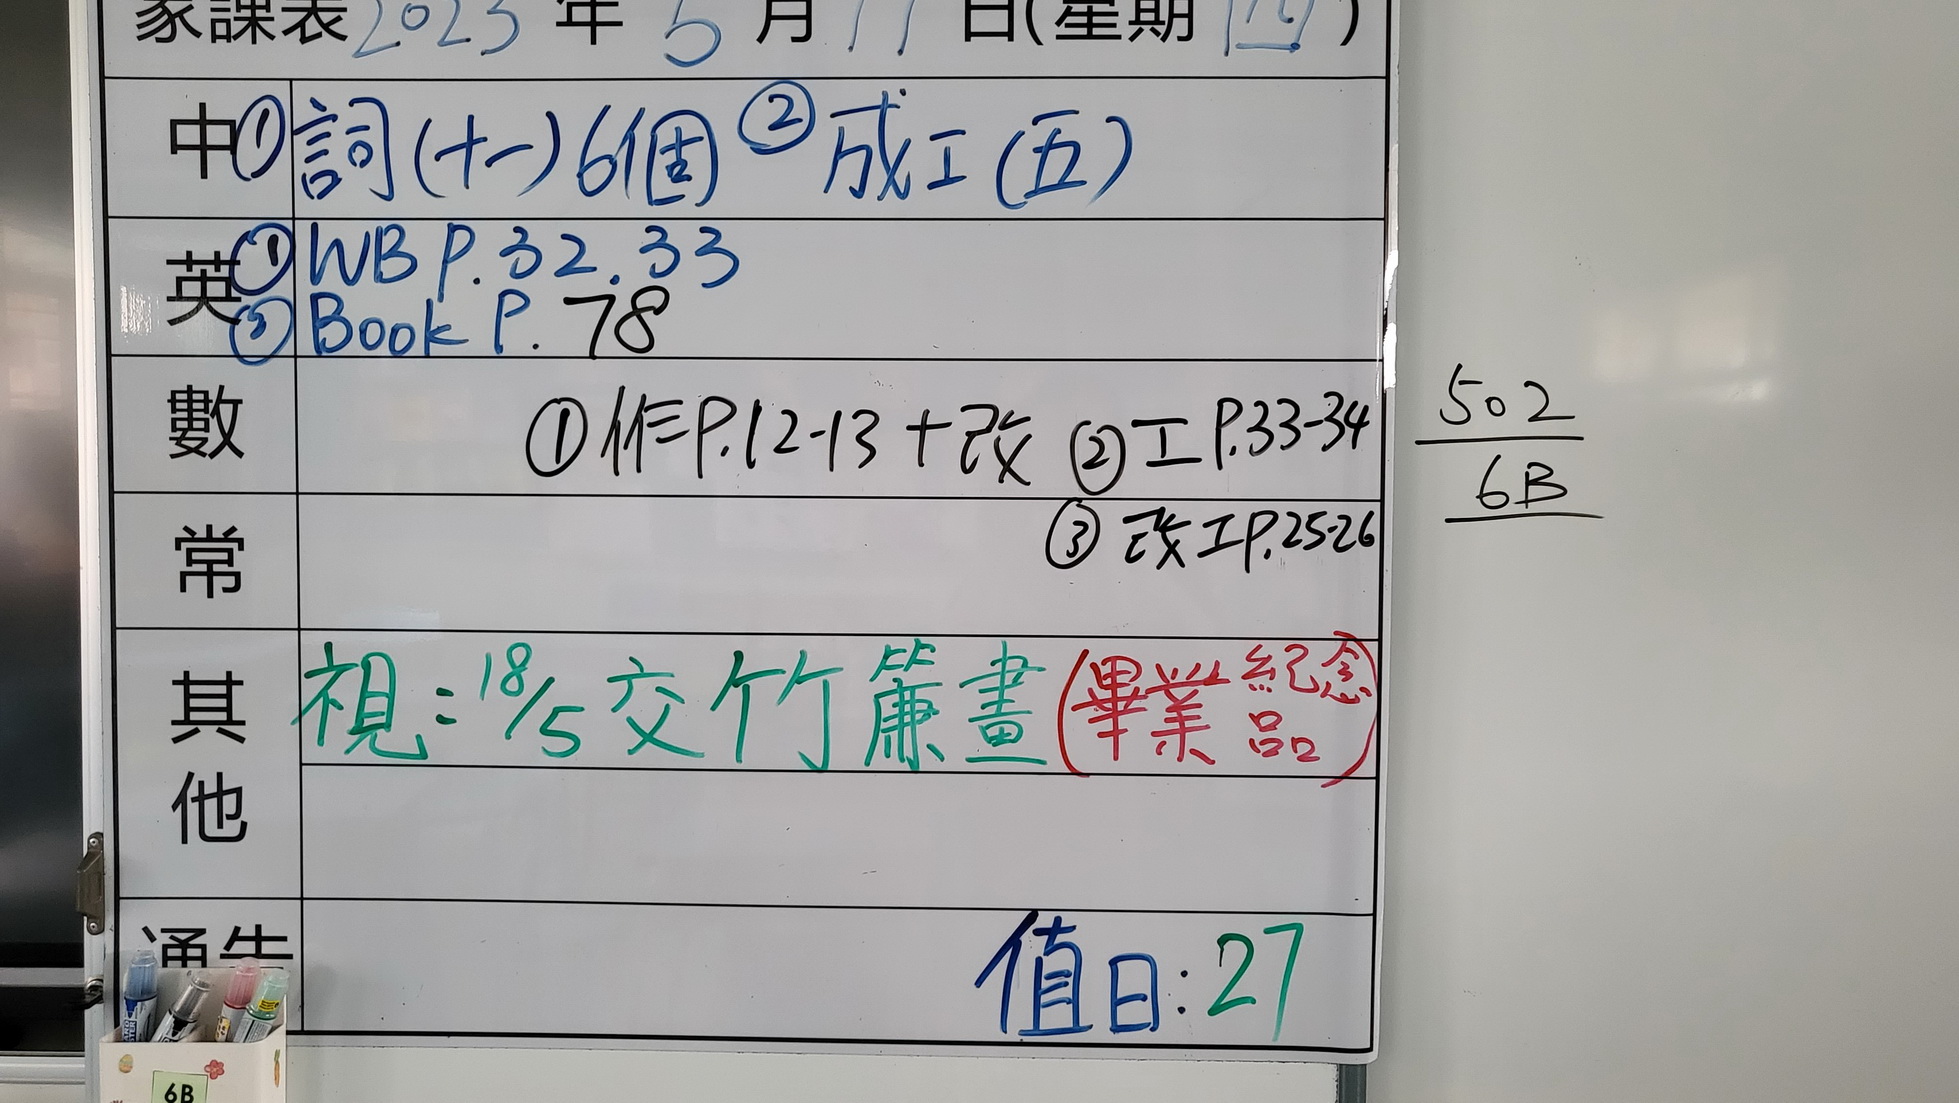 家課表 2023 年 5 月 11 日(星期 四)
中 ① 詞(十一)6個 ② 成工(五)
英 ① WB P.32.33
② Book P. 78
數 ① 作P.12-13+改 ② 工P.33-34
③ 改工P.25-26
常
其他 視:18/5交竹簾畫(畢業紀念品)
通告 值日:27
502
6B
6B